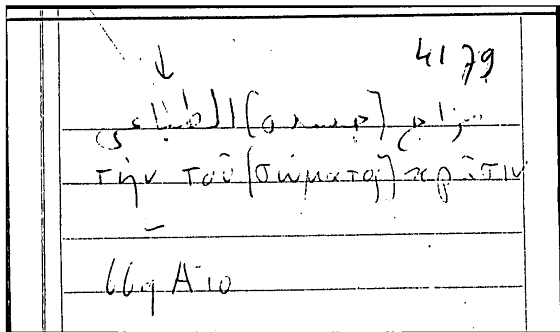 4179
مزاج (جسمه) الطباعي
τὴν τοῦ [σώματος] κρᾶσιν
669 A 10